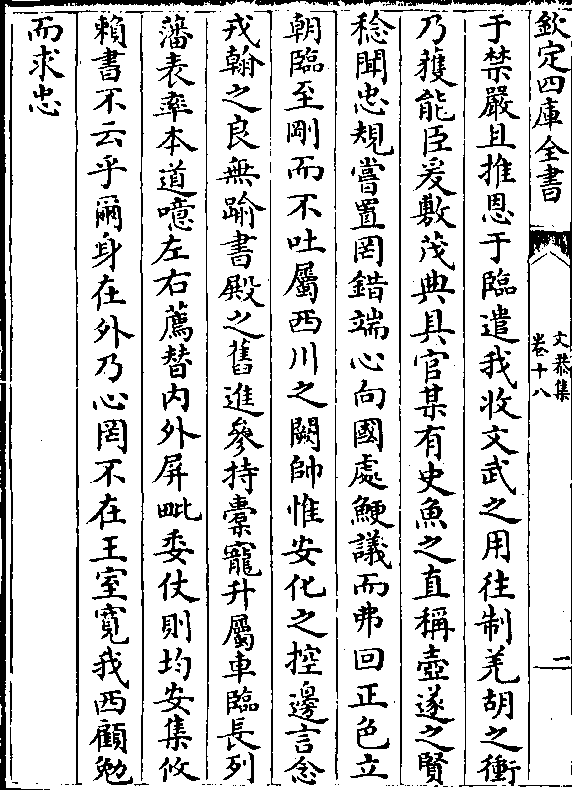 欽定四庫全書
文恭集
卷十八
二
于禁嚴且推恩于臨遣我收文武之用往制羌胡之衝
乃獲能臣爰敷茂典具官某有史魚之直稱壺遂之賢
稔聞忠規嘗置罔錯端心向國處鯁議而弗回正色立
朝臨至剛而不吐屬西川之闕帥惟安化之控邊言念
戎翰之良無踰書殿之舊進參持橐寵升屬車臨長列
藩表率本道噫左右薦替内外屏毗委仗則均安集攸
賴書不云乎爾身在外乃心罔不在王室寛我西顧勉
而求忠